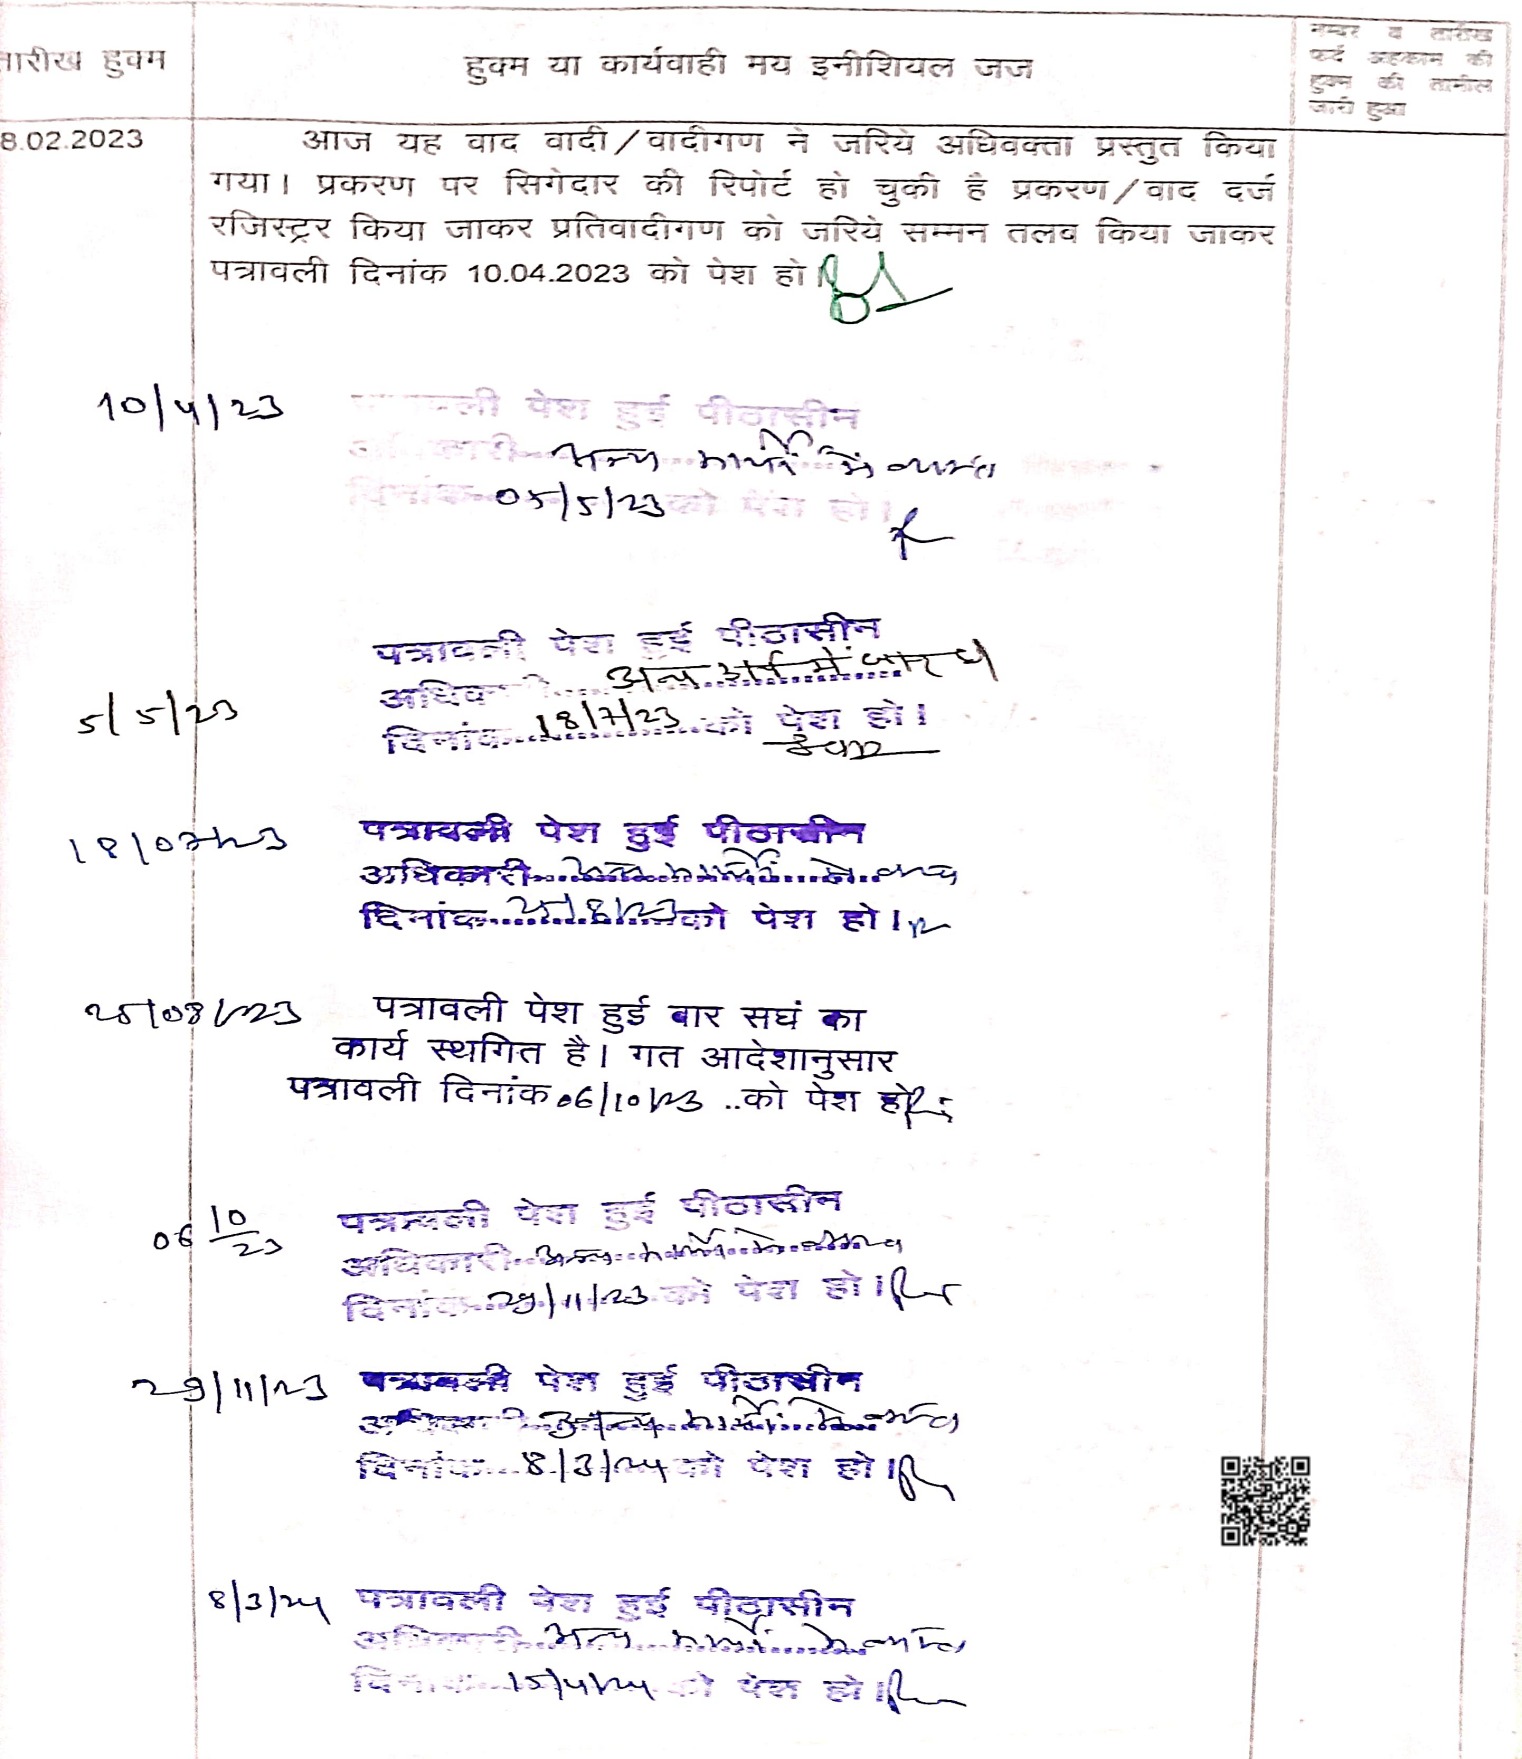 तारीख हुक्म
हुक्म या कार्यवाही मय इनीशियल जज
नम्बर व तारीख
फर्द अहकाम की
हुक्म की तामील
जारी हुआ
8.02.2023
आज यह वाद वादी/वादीगण ने जरिये अधिवक्ता प्रस्तुत किया
गया। प्रकरण पर सिगेदार की रिपोर्ट हो चुकी है प्रकरण/वाद दर्ज
रजिस्ट्रर किया जाकर प्रतिवादीगण को जरिये सम्मन तलब किया जाकर
पत्रावली दिनांक 10.04.2023 को पेश हो।
10/4/23
पत्रावली पेश हुई पीठासीन
अधिकारी अन्य कार्यों में व्यस्त
दिनांक 05/5/23 को पेश हो।
5/5/23
पत्रावली पेश हुई पीठासीन
अधिकारी अन्य कार्य में
दिनांक 18/7/23 को पेश हो।
18/07/23
पत्रावली पेश हुई पीठासीन
अधिकारी अन्य कार्यों में व्यस्त
दिनांक 25/8/23 को पेश हो।
25/08/23
पत्रावली पेश हुई बार सघं का
कार्य स्थगित है। गत आदेशानुसार
पत्रावली दिनांक 06/10/23 ..को पेश हो
06 10/23
पत्रावली पेश हुई पीठासीन
अधिकारी अन्य कार्यों में व्यस्त
दिनांक 29/11/23 को पेश हो।
29/11/23
पत्रावली पेश हुई पीठासीन
अधिकारी अन्य कार्यों में व्यस्त
दिनांक 8/3/24 को पेश हो।
8/3/24
पत्रावली पेश हुई पीठासीन
अधिकारी अन्य कार्यों में व्यस्त
दिनांक 15/4/24 को पेश हो।